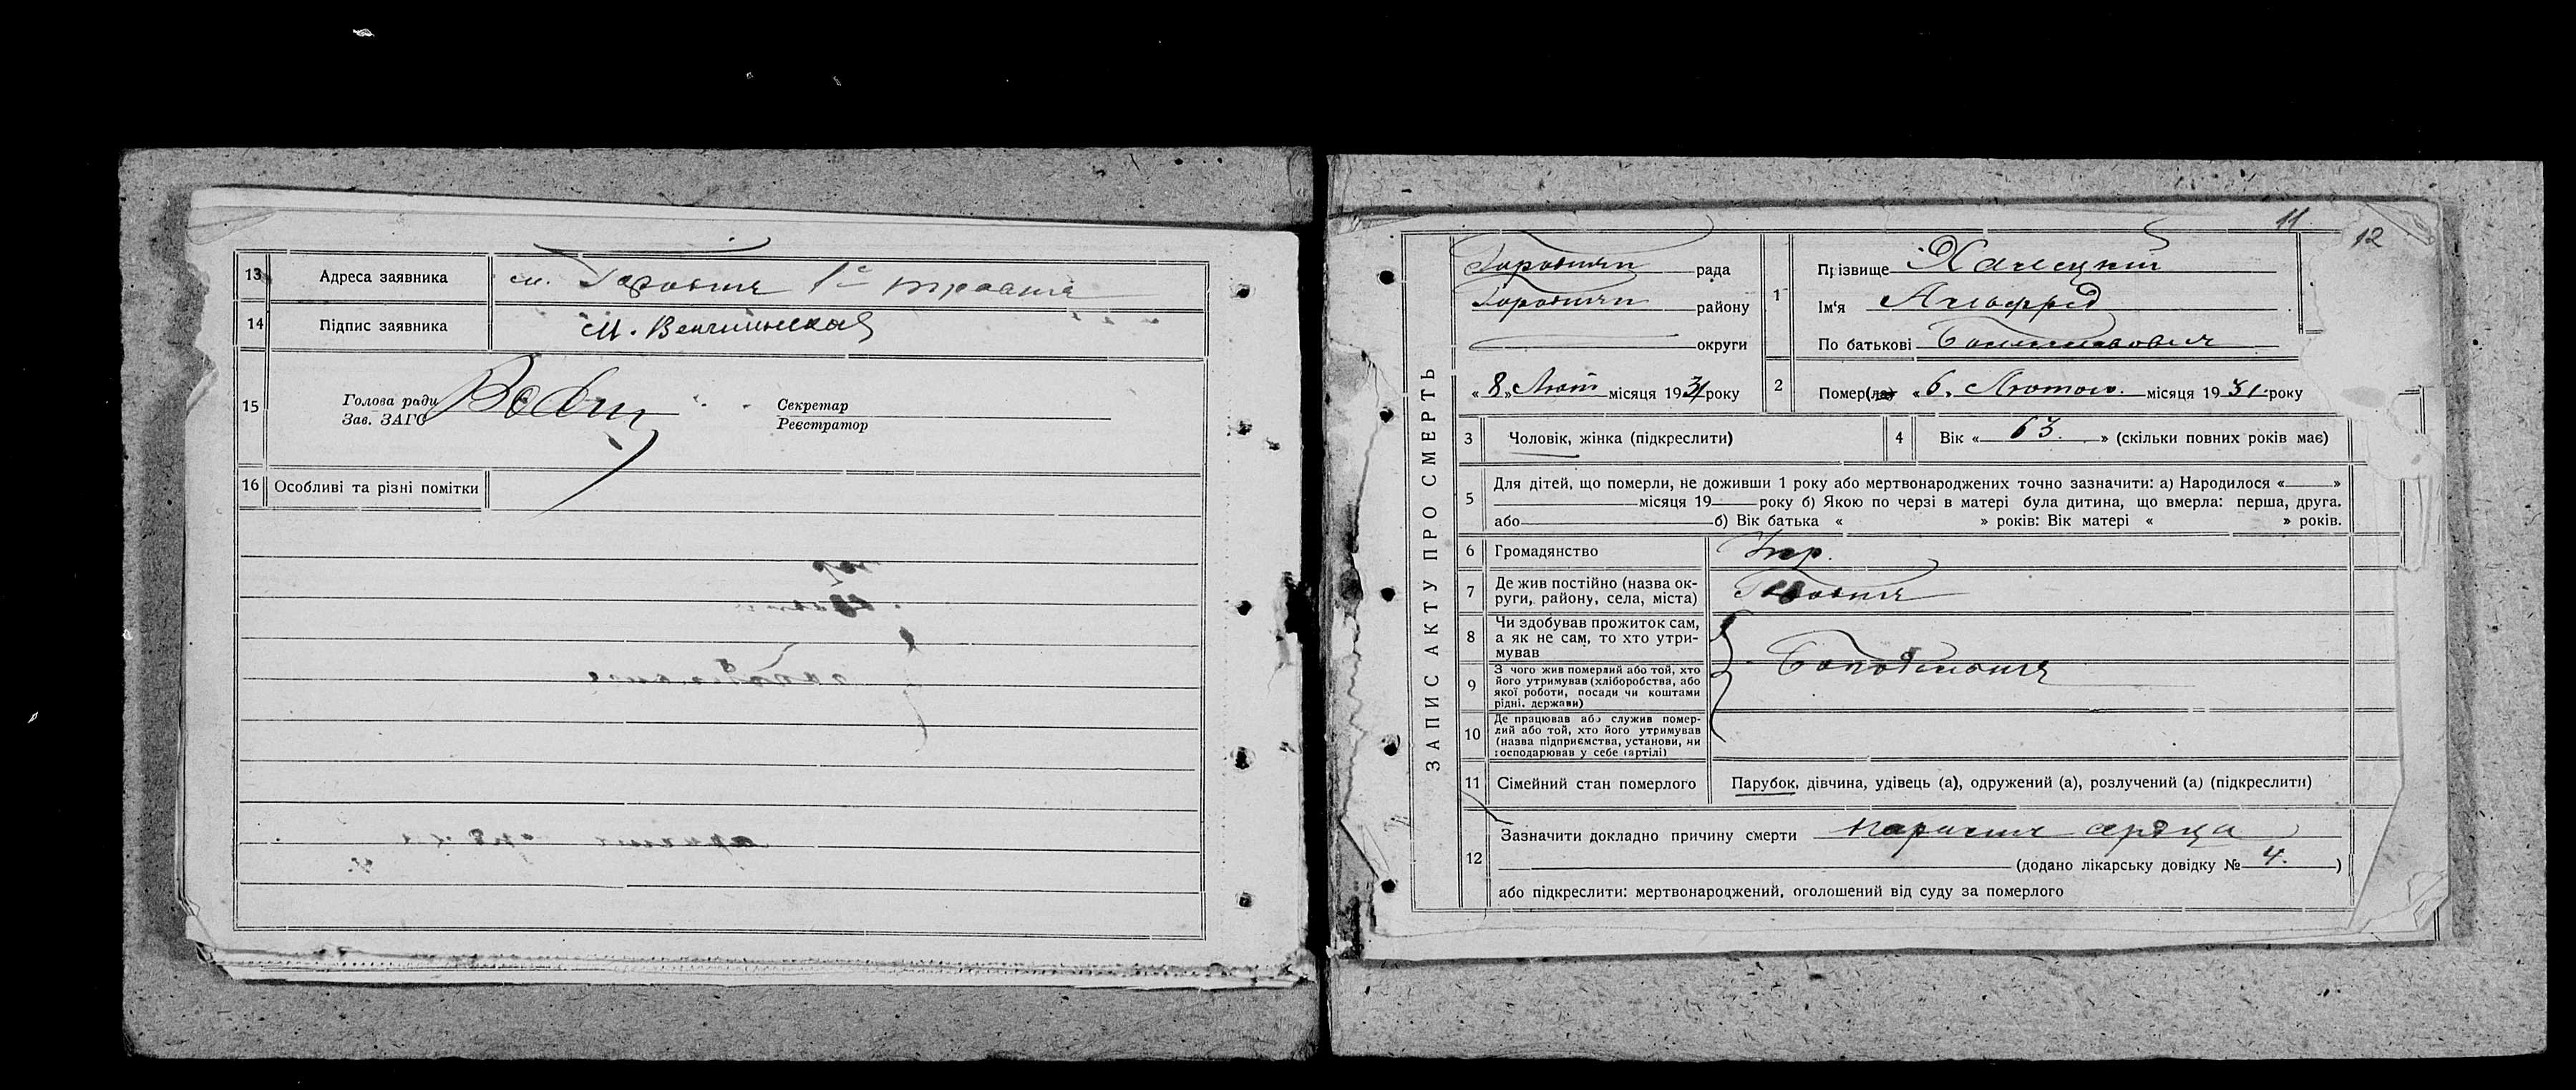 13 Адреса заявника м. Городня 1го травня
14 Підпис заявника М. Венчинская
15 Голова ради Секретар
Зав. ЗАГС Реєстратор
16 Особливі та різні помітки
11 12
ЗАПИС АКТУ ПРО СМЕРТЬ
Городнян рада
Городнян району
округи
« 8 » Лют місяця 1931 року
1 Прізвище
Ім'я Альфред
По батькові
2 Помер(ла) « 6 » Лютого місяця 1931 року
3 Чоловік, жінка (підкреслити)
4 Вік « 63 » (скільки повних років має)
5 Для дітей, що померли, не доживши 1 року або мертвонароджених точно зазначити: а) Народилося « »
місяця 19 року б) Якою по черзі в матері була дитина, що вмерла: перша, друга.
або б) Вік батька « » років: Вік матері « » років.
6 Громадянство Укр.
7 Де жив постійно (назва ок-
руги, району, села, міста) Городня
8 Чи здобував прожиток сам,
а як не сам, то хто утри-
мував
9 З чого жив померлий або той, хто
його утримував (хліборобства, або
якої роботи, посади чи коштами
рідні, держави)
10 Де працював або служив помер-
лий або той, хто його утримував
(назва підприємства, установи, чи
господарював у себе (артілі)
11 Сімейний стан померлого Парубок, дівчина, удівець (а), одружений (а), розлучений (а) (підкреслити)
12 Зазначити докладно причину смерти параліч сердца
(додано лікарську довідку № 4. )
або підкреслити: мертвонароджений, оголошений від суду за померлого